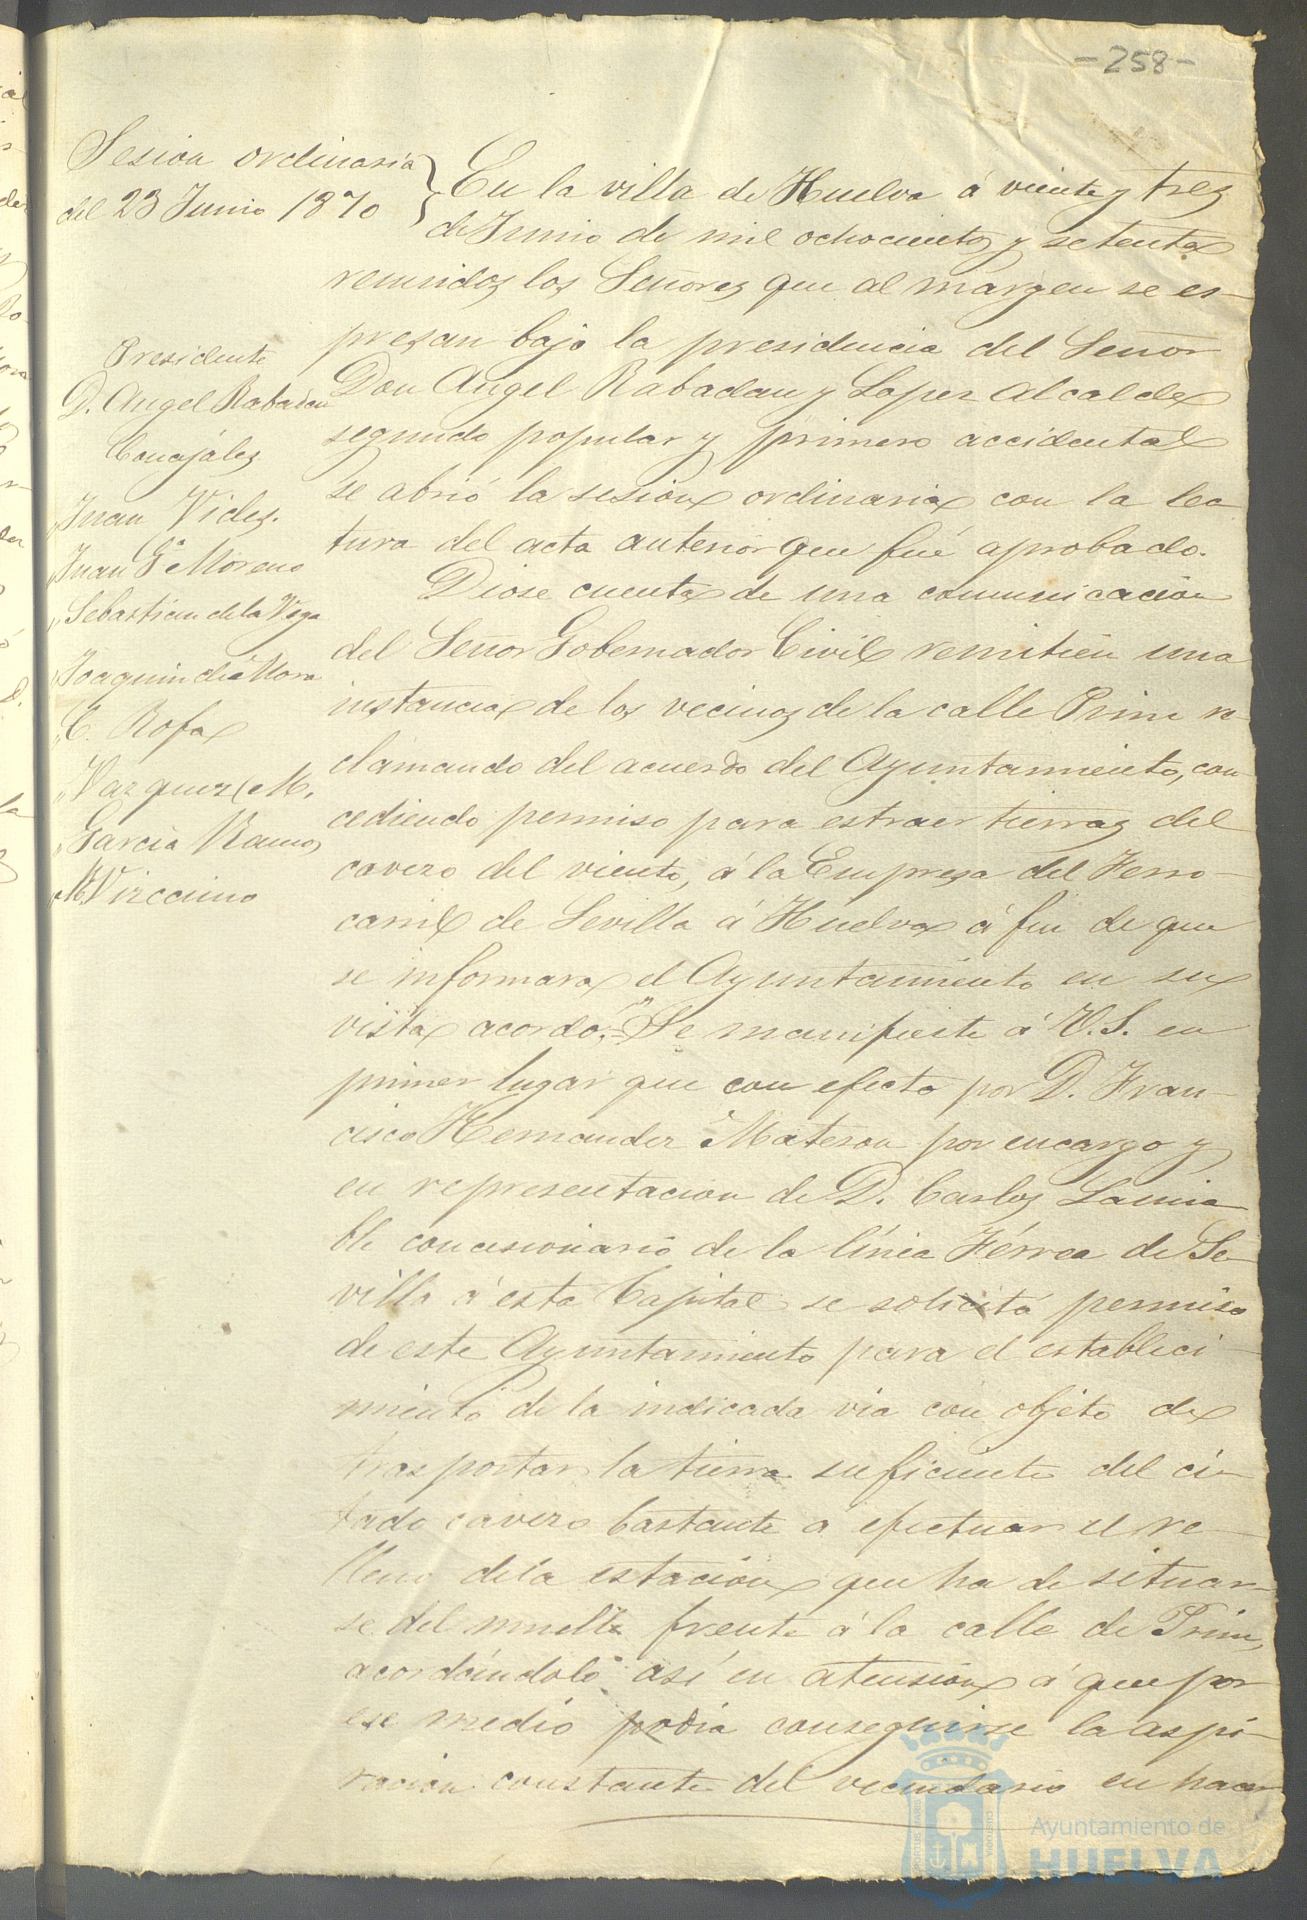 -258-
Sesion ordinaria
del 23 Junio 1870
Presidente
D. Angel Rabadan
Concejáles
" Juan Vides.
" Juan Gª Moreno
" Sebastian de la Vega
" Joaquin de Mora
" C. Rofa
" Vazquez (M.
" Garcia Ramos
" M. Vizcaino
En la villa de Huelva á veinte y tres
de Junio de mil ochocientos y setenta
reunidos los Señores que al margen se es-
presan bajo la presidencia del Señor
Don Angel Rabadan y Lopez Alcalde
segundo popular y primero accidental
se abrió la sesion ordinaria con la lec
tura del acta anterior que fué aprobado.
Diose cuenta de una comunicacion
del Señor Gobernador Civil remitien una
instancia de los vecinos de la calle Prim re-
clamando del acuerdo del Ayuntamiento, con
cediendo permiso para estraer tierras del
cavezo del viento, á la Empresa del Ferro-
carril de Sevilla á Huelva á fin de que
se informara el Ayuntamiento en su
vista acordó: "Se manifieste á V.S. en
primer lugar que con efecto por D. Fran-
cisco Hernandez Materon por encargo y
en representacion de D. Carlos Lamia
ble concisionario de la línea Férrea de Se-
villa á esta Capital se solicitó permiso
de este Ayuntamiento para el estableci-
miento de la indicada via con objeto de
trasportar la tierra suficiente del ci-
tado cavezo bastante á efectuar el re-
lleno de la estacion que ha de situar-
se del muelle frente á la calle de Prim,
acordóndolo así en atension á que por
ese medio podia conseguirse la aspi-
racion constante del vecindario en hacer
Ayuntamiento de
HUELVA